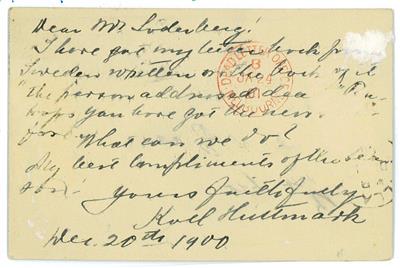 Dear Mr. Söderberg!
I have got my letter back from
Sweden written on the back of it
"the person addressed dea
haps you have got the news
What can we do?
My best compliments of the sea-
son.
Yours faithfully
Koll Hultmark
Dec. 20th 1900.